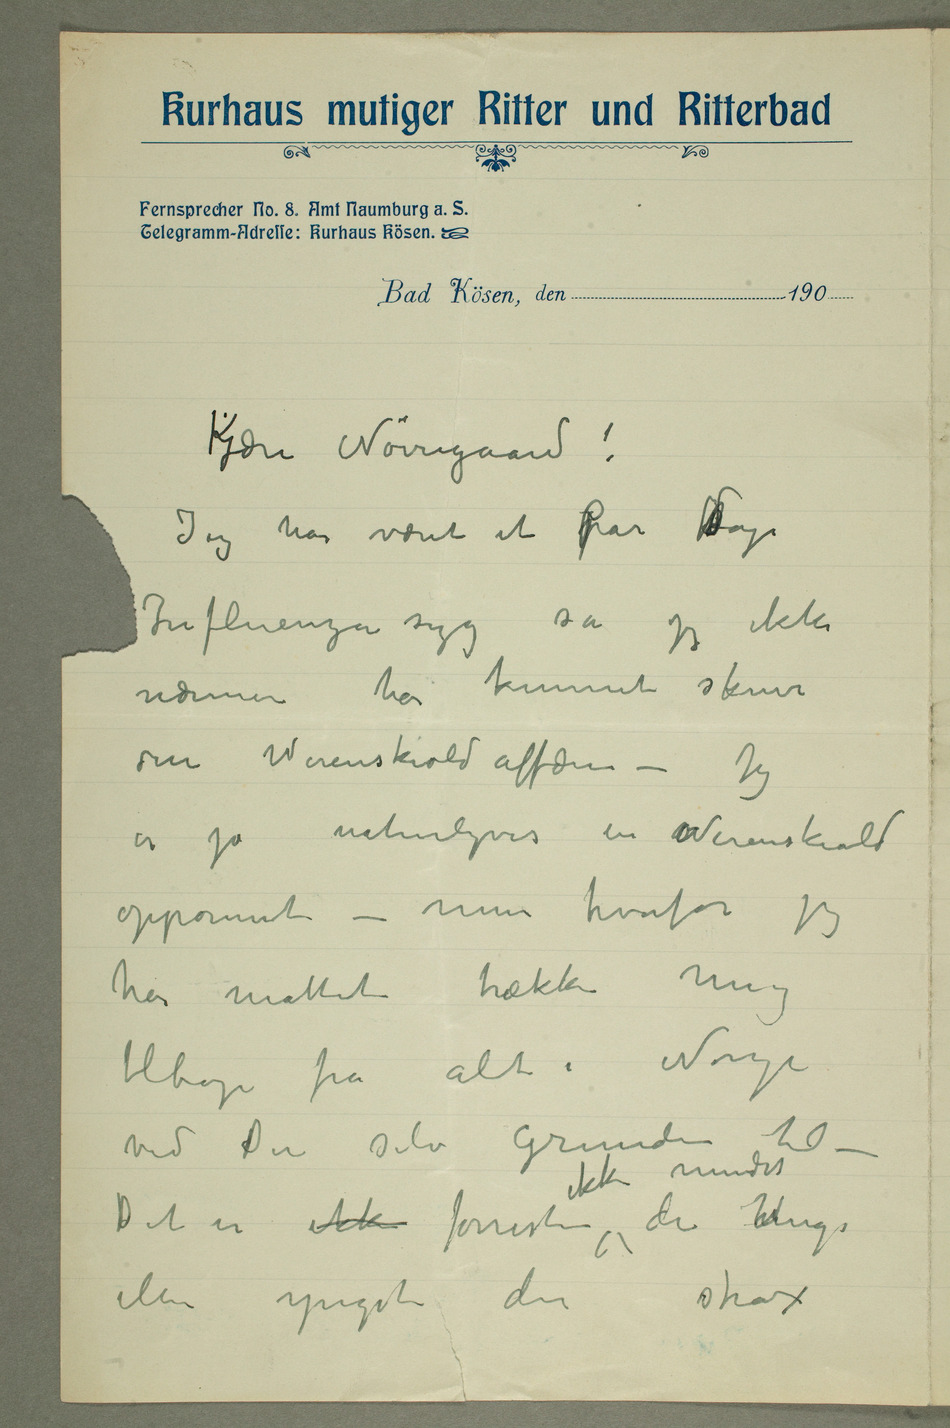 Kurhaus mutiger Ritter und Ritterbad
Fernsprecher No. 8. Amt Naumburg a. S.
Telegramm-Adresse: Kurhaus Kösen.
Bad Kösen, den 190
Kjære Nörregaard!
Jeg har været et Par Dage
Influenza syg så jeg ikke
nærmere har kunnet skrive
om Werenskiold affæren – Jeg
er jo naturligvis en Werenskiold
opponent – men hvorfor jeg
har måttet trække mig
tilbage fra alt i Norge
ved De selv Grunden til –
Det er ikke forresten ikke mindst de unge
eller yngste der strax